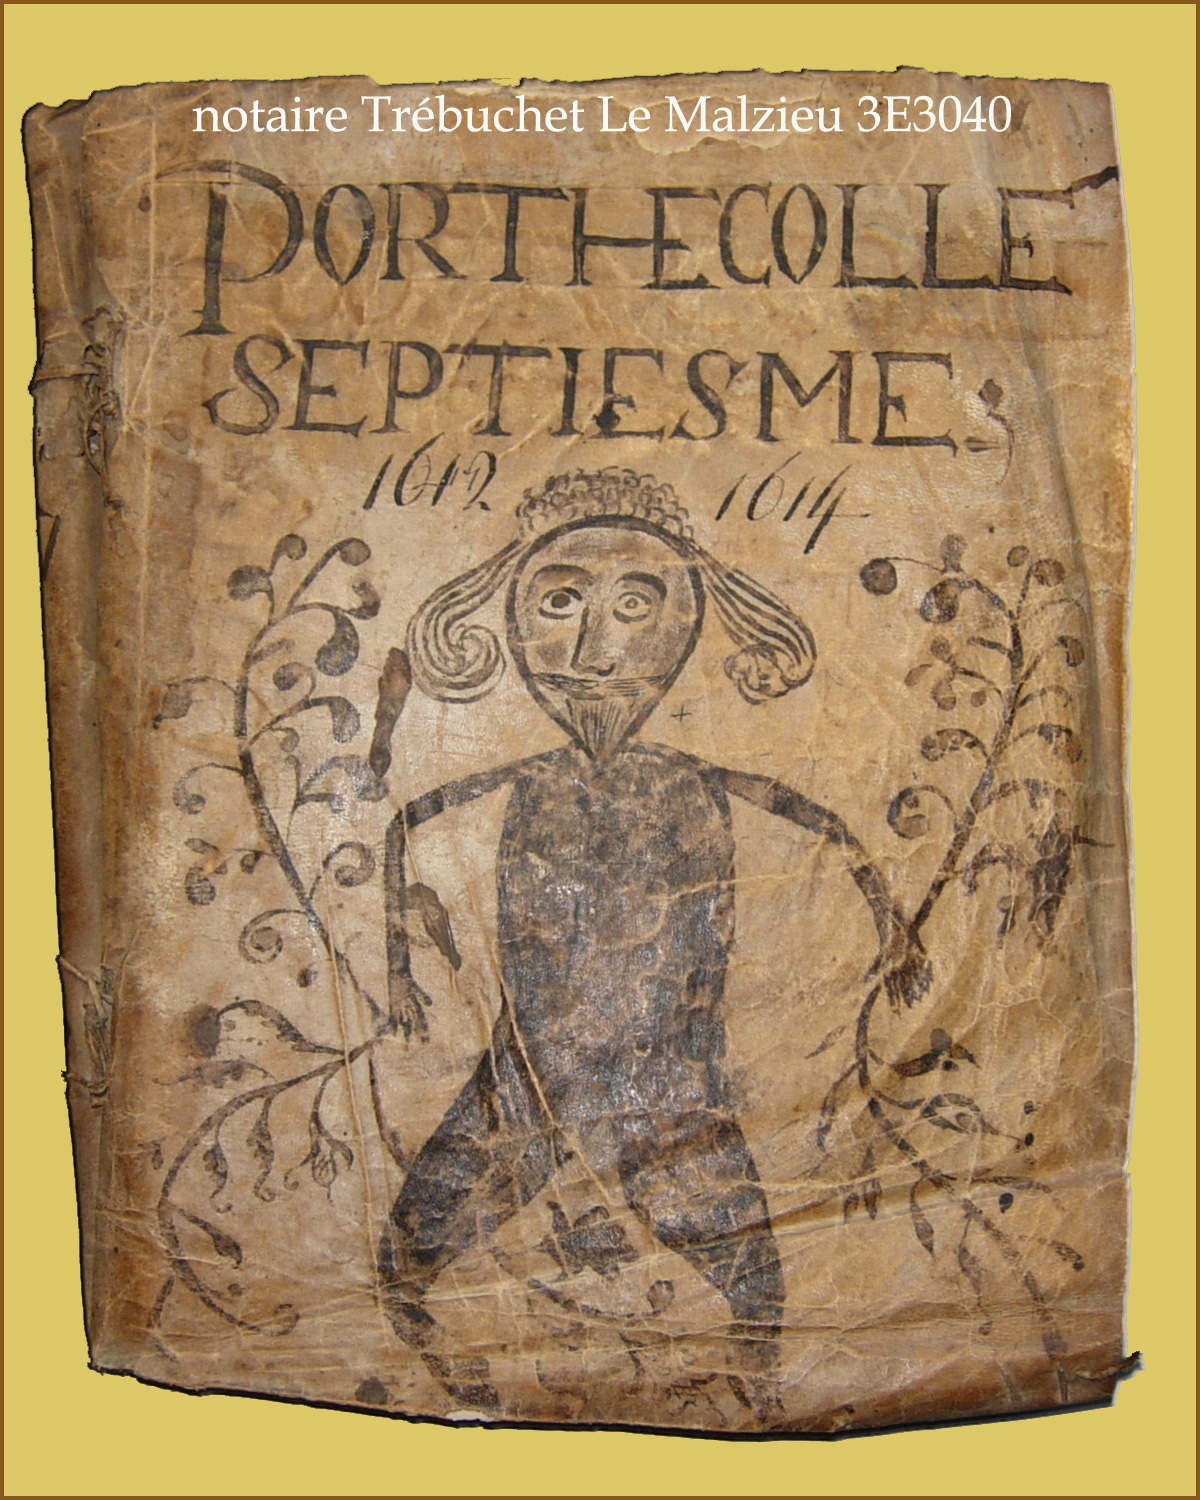 notaire Trébuchet Le Malzieu 3E3040
PORTHECOLLE
SEPTIESME
1612 1614